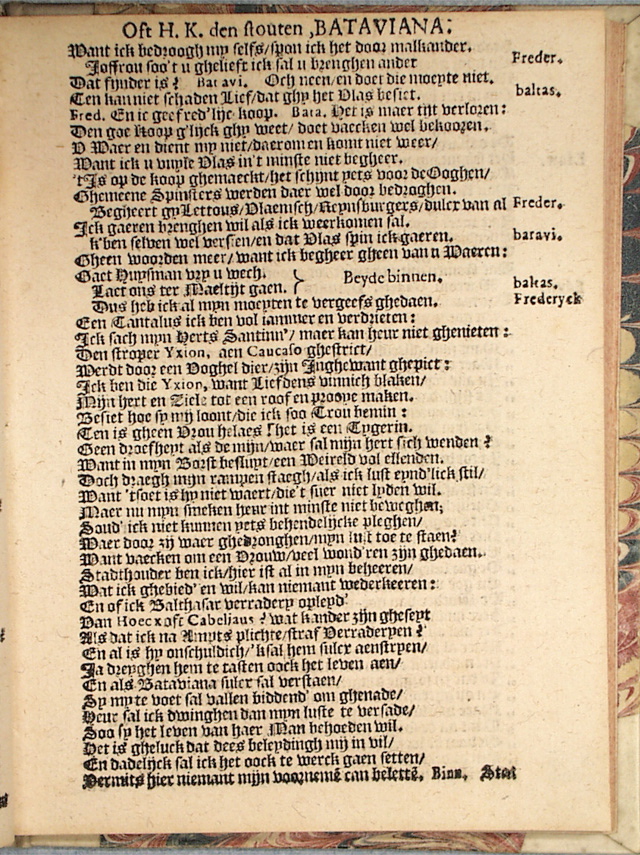 Oft H. K. den stouten ,BATAVIANA:
Want ick bedroogh my selfs/spon ick het door malkander.
Joffrou soo't u ghelieft ick sal u brenghen ander Freder.
Dat fynder is? Batavi. Och neen/en doet die moeyte niet.
Ten kan niet schaden Lief/dat ghy het Vlas besiet. baltas.
Fred. En ic geef red'lijc koop. Bata. Het is maer tijt verloren:
Den goe koop g'lijck ghy weet/ doet vaecken wel bekooren.
V Waer en dient my niet/daerom en komt niet weer/
Want ick u vuyle Vlas in't minste niet begheer.
't Is op de koop ghemaeckt/het schijnt yets voor de Ooghen/
Ghemeene Spinsters werden daer wel door bedroghen.
Begheert gy Lettous/Vlaemsch/Reynsburgers/dulcx van al Freder.
Ick gaeren brenghen wil als ick weerkomen sal.
k'ben selven wel versien/en dat Vlas spin ick gaeren. batavi.
Gheen woorden meer/ want ick begheer gheen van u Waeren:
Gaet Huysman vry u wech. } Beyde binnen.
Laet ons ter Maeltijt gaen. baltas.
Dus heb ick al myn moeyten te vergeefs ghedaen. Frederyck
Een Tantalus ick ben vol iammer en verdrieten:
Ick sach myn Herts Santinn'/ maer kan heur niet ghenieten:
Den strooper Yxion, aen Caucaso ghestrict/
Werdt door een Voghel dier/zijn Inghewant ghepict:
Ick ben die Yxion, want Liefdens vinnich blaken/
Mijn hert en Ziele tot een roof en prooye maken.
Besiet hoe sy my loont/die ick soo Trou bemin:
Ten is gheen Vrou helaes! het is een Tygerin.
Geen droefheyt als de mijn/waer sal mijn hert sich wenden?
Want in myn Borst besluyt/een Weireld vol ellenden.
Doch draegh mijn rampen staegh/als ick lust eynd'lick stil/
Want 'tsoet is hy niet waert/die't suer niet lyden wil.
Maer nu myn smeken heur int minste niet beweghen;
Soud' ick niet kunnen yets behendelijcke pleghen/
Waer door zij waer ghedronghen/myn lust toe te staen?
Want vaecken om een Vrouw/veel wond'ren zijn ghedaen.
Stadthouder ben ick/hier ist al in myn beheeren/
Wat ick ghebied' en wil/kan niemant wederkeeren:
En of ick Balthasar verradery opleyd'
Van Hoecx oft Cabeljaus? wat kander zijn gheseyt
Als dat ick na Ampts plichte/straf Verraderyen?
En al is hy onschuldich/'ksal hem sulcx aenstryen/
Ja dreyghen hem te tasten oock het leven aen/
En als Bataviana sulcx sal verstaen/
Sy my te voet sal vallen biddend' om ghenade/
Heur sal ick dwinghen dan myn luste te versade/
Soo sy het leven van haer Man behoeden wil.
Het is gheluck dat dees beleydingh mij in vil/
En dadelijck sal ick het oock te werck gaen setten/
Vermits hier niemant mijn voornemē can belettē. Binn. Stat